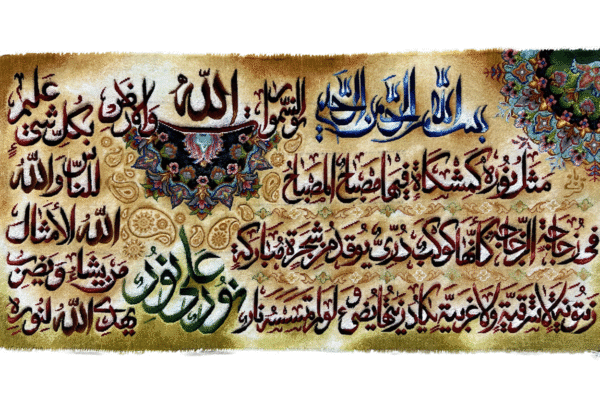 بسم الله الرحمن الرحيم
الله نور السموات والارض
مثل نوره كمشكاة فيها مصباح المصباح
في زجاجة الزجاجة كأنها كوكب دري يوقد من شجرة مباركة
زيتونة لا شرقية ولا غربية يكاد زيتها يضيء ولو لم تمسسه نار
نور على نور
يهدي الله لنوره
من يشاء ويضرب
الله الأمثال
للناس والله
بكل شيء
عليم